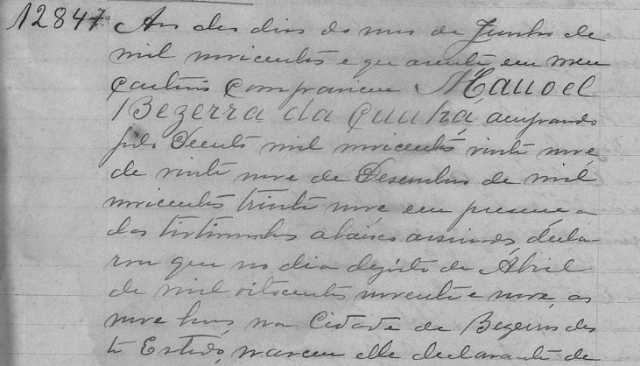 12847 Aos des dias do mes de Junho de
mil novicentos e quarenta em meu
cartorio compareceu Manoel
Bezerra da Cunha, amparado
pelo Decreto mil novicentos vinte nove
de vinte nove de Desembro de mil
novicentos trinta nove em presença
das testimunhas abaixo assinados, decla-
rou que no dia dezoito de Abril
de mil oitocentos noventa e nove, as
nove horas, na Cidade de Bezerros des-
te Estado, nasceu elle declarante de